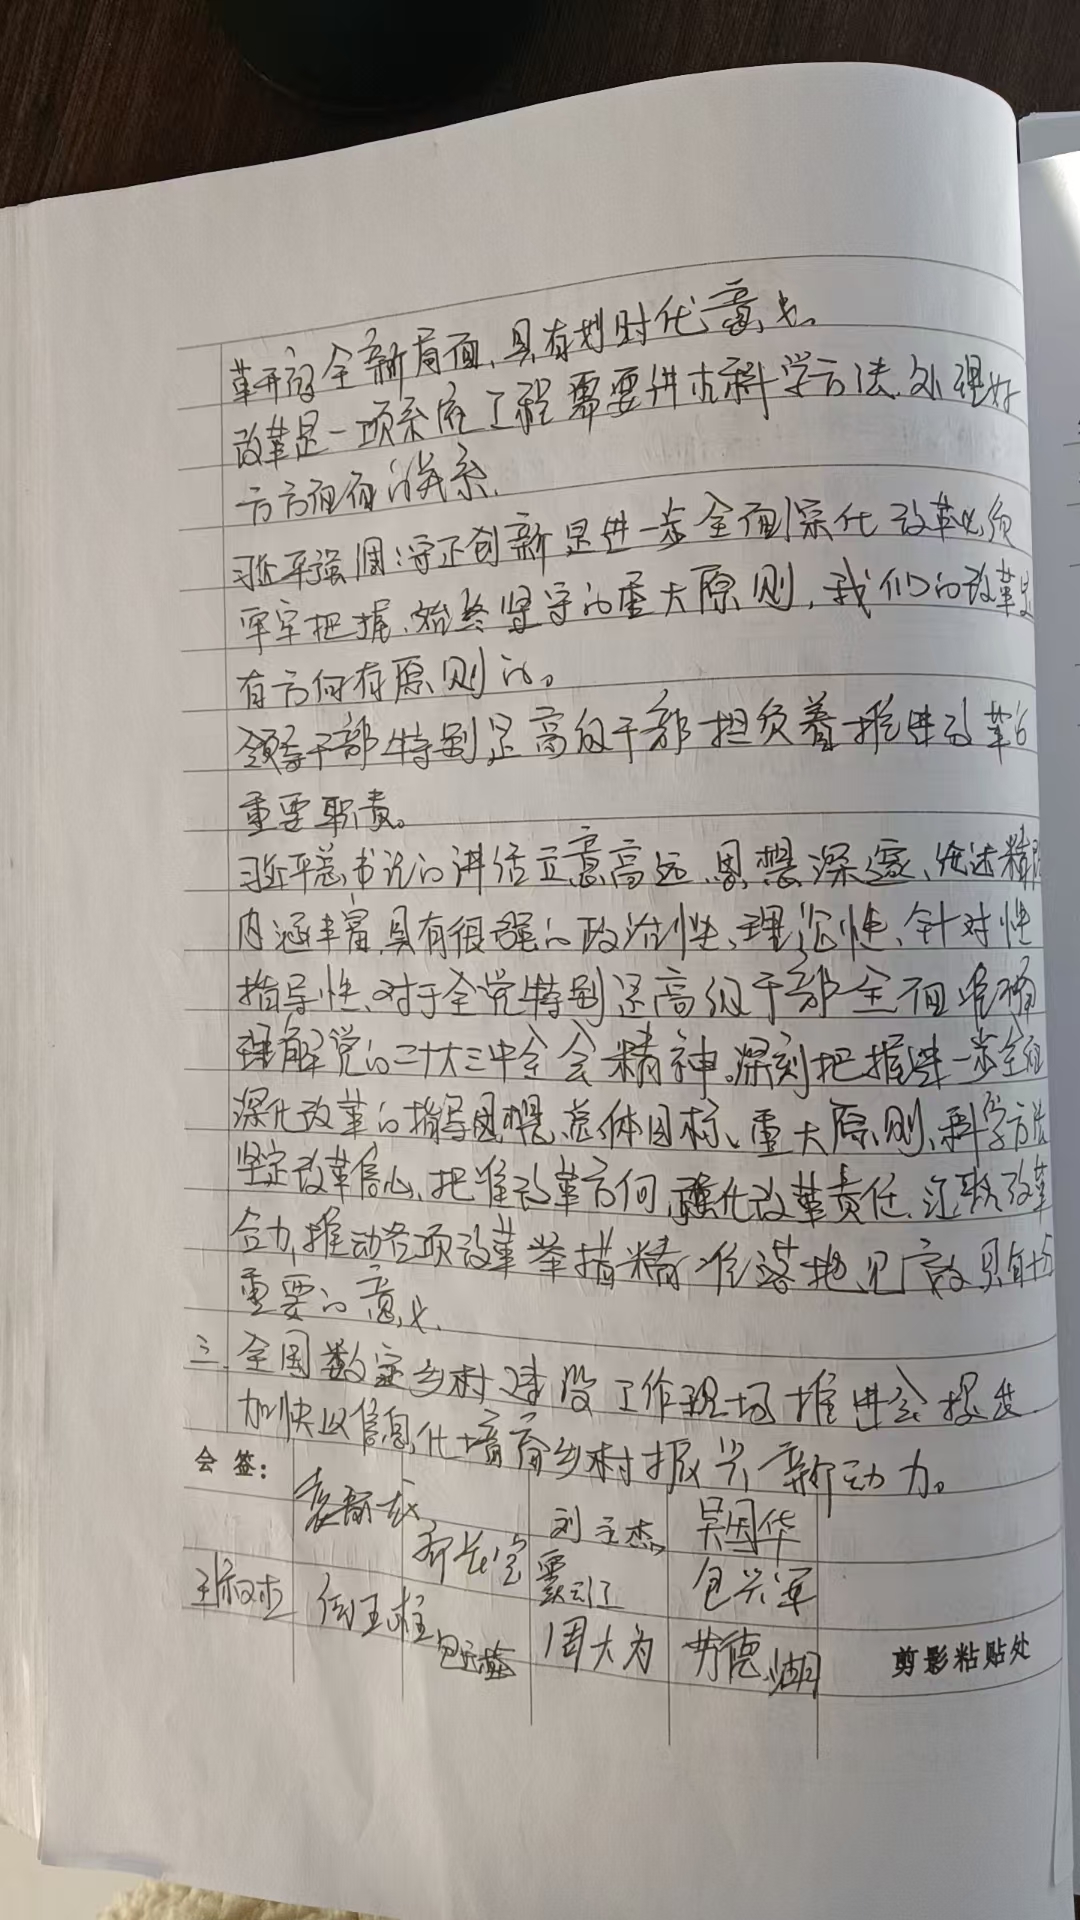 革开放全新局面、具有划时代意义。
改革是一项系统工程需要讲求科学方法、处理好
方方面面的关系、
习近平强调：守正创新是进一步全面深化改革必须
牢牢把握、始终坚守的重大原则，我们的改革是
有方向有原则的。
领导干部特别是高级干部担负着推进改革的
重要职责。
习近平总书记的讲话立意高远、思想深邃、论述精
内涵丰富、具有很强的政治性、理论性、针对性
指导性、对于全党特别是高级干部全面准确
理解党的二十大三中全会精神。深刻把握进一步全面
深化改革的指导思想、总体目标、重大原则、科学方法
坚定改革信心、把准改革方向、强化改革责任、汇聚改革
合力，推动各项改革举措精准落地见效具有十分
重要的意义、
三、全国数字乡村建设工作现场推进会提出
加快以信息化培育乡村振兴新动力。
会签：
刘立杰 吴国华
包兴军
周大为
剪影粘贴处